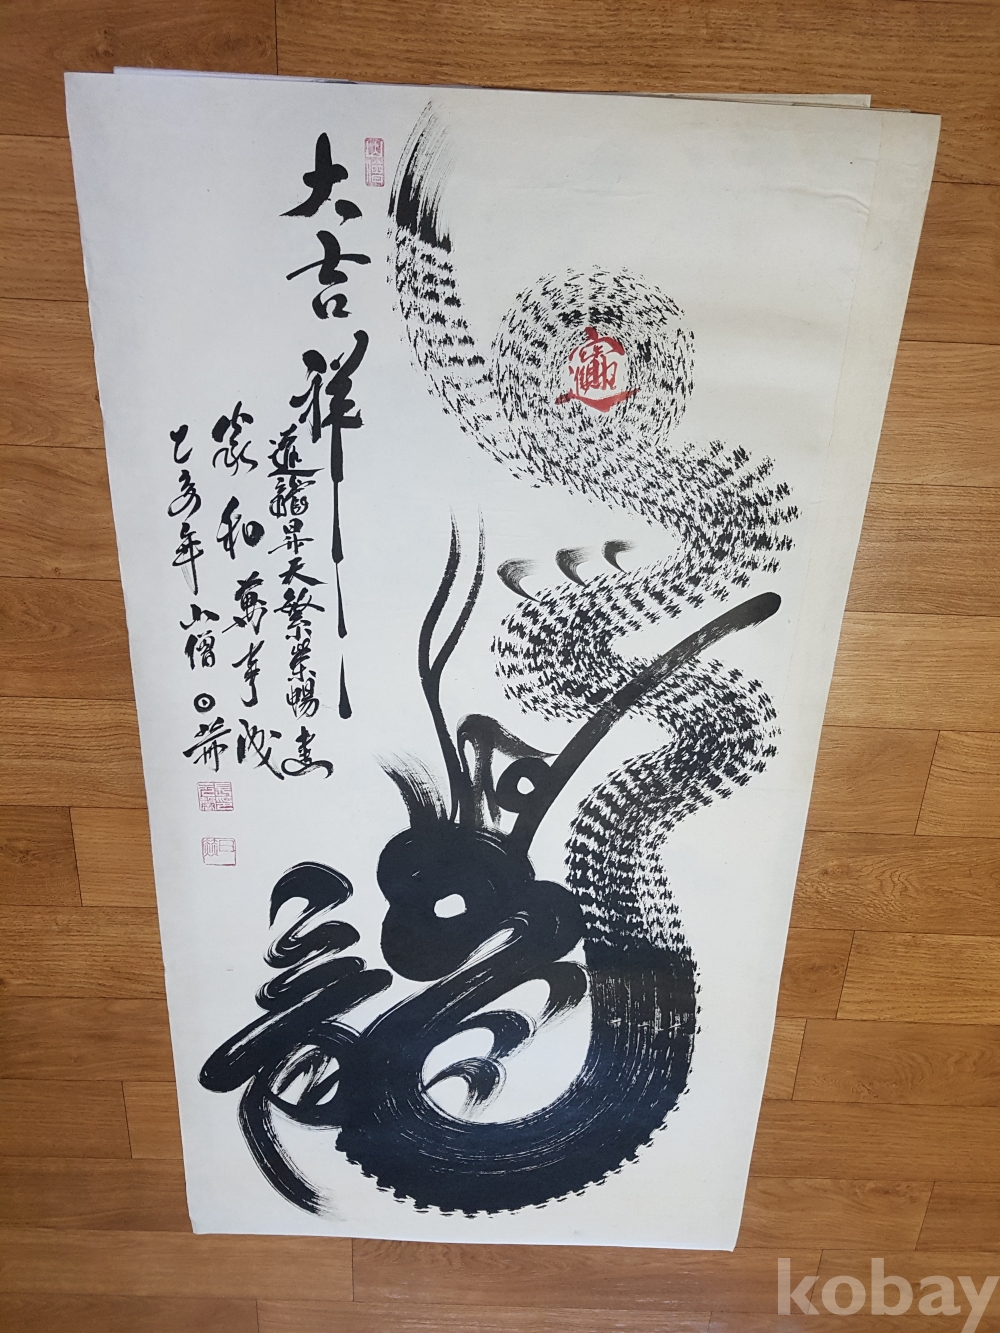 龍
大吉祥
龍昇天繁榮暢達
家和萬事成
乙亥年 小僧
kobay